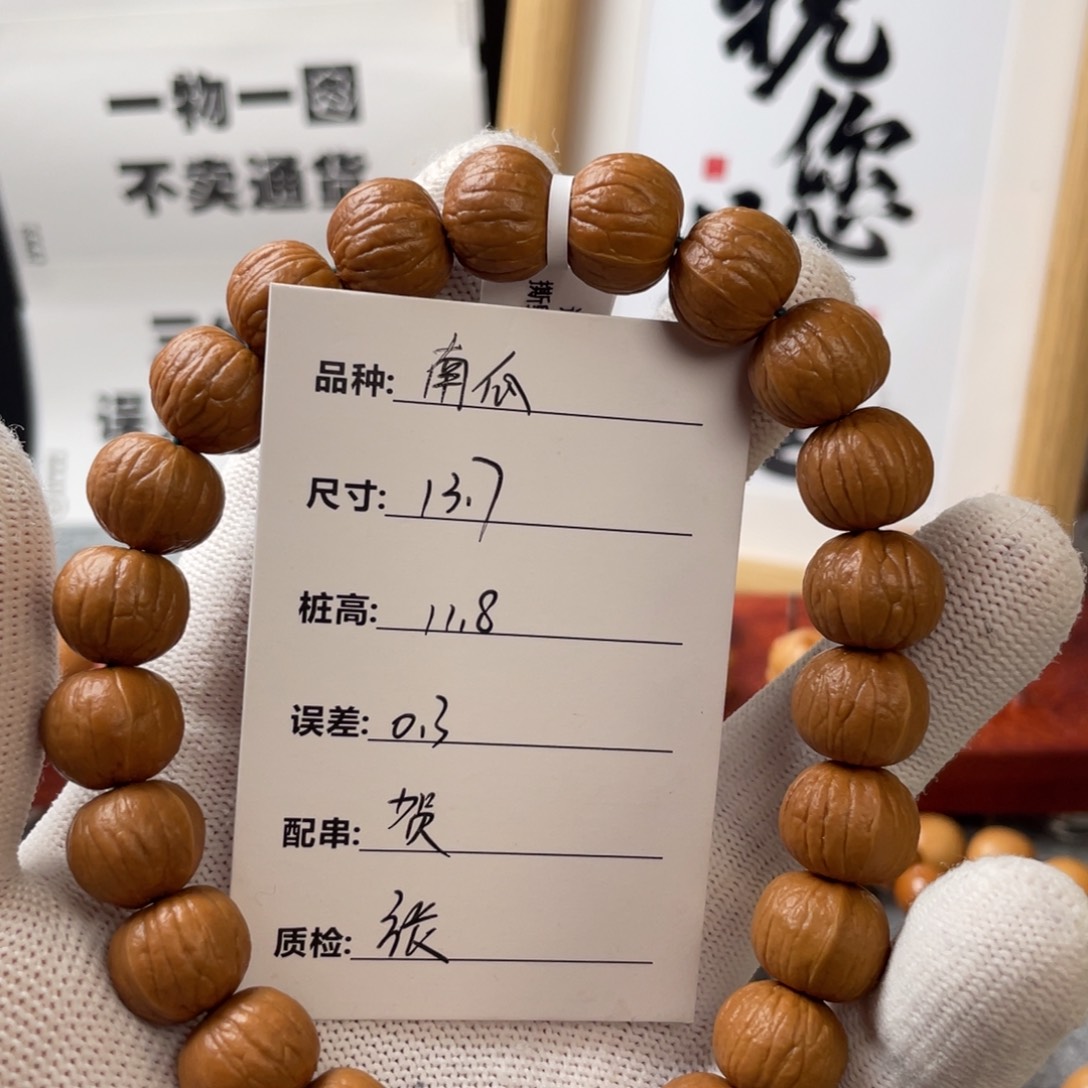 一物一图
不卖通货
祝您
品种: 南瓜
尺寸: 13.7
桩高: 11.8
误差: 0.3
配串: 贺
质检: 张